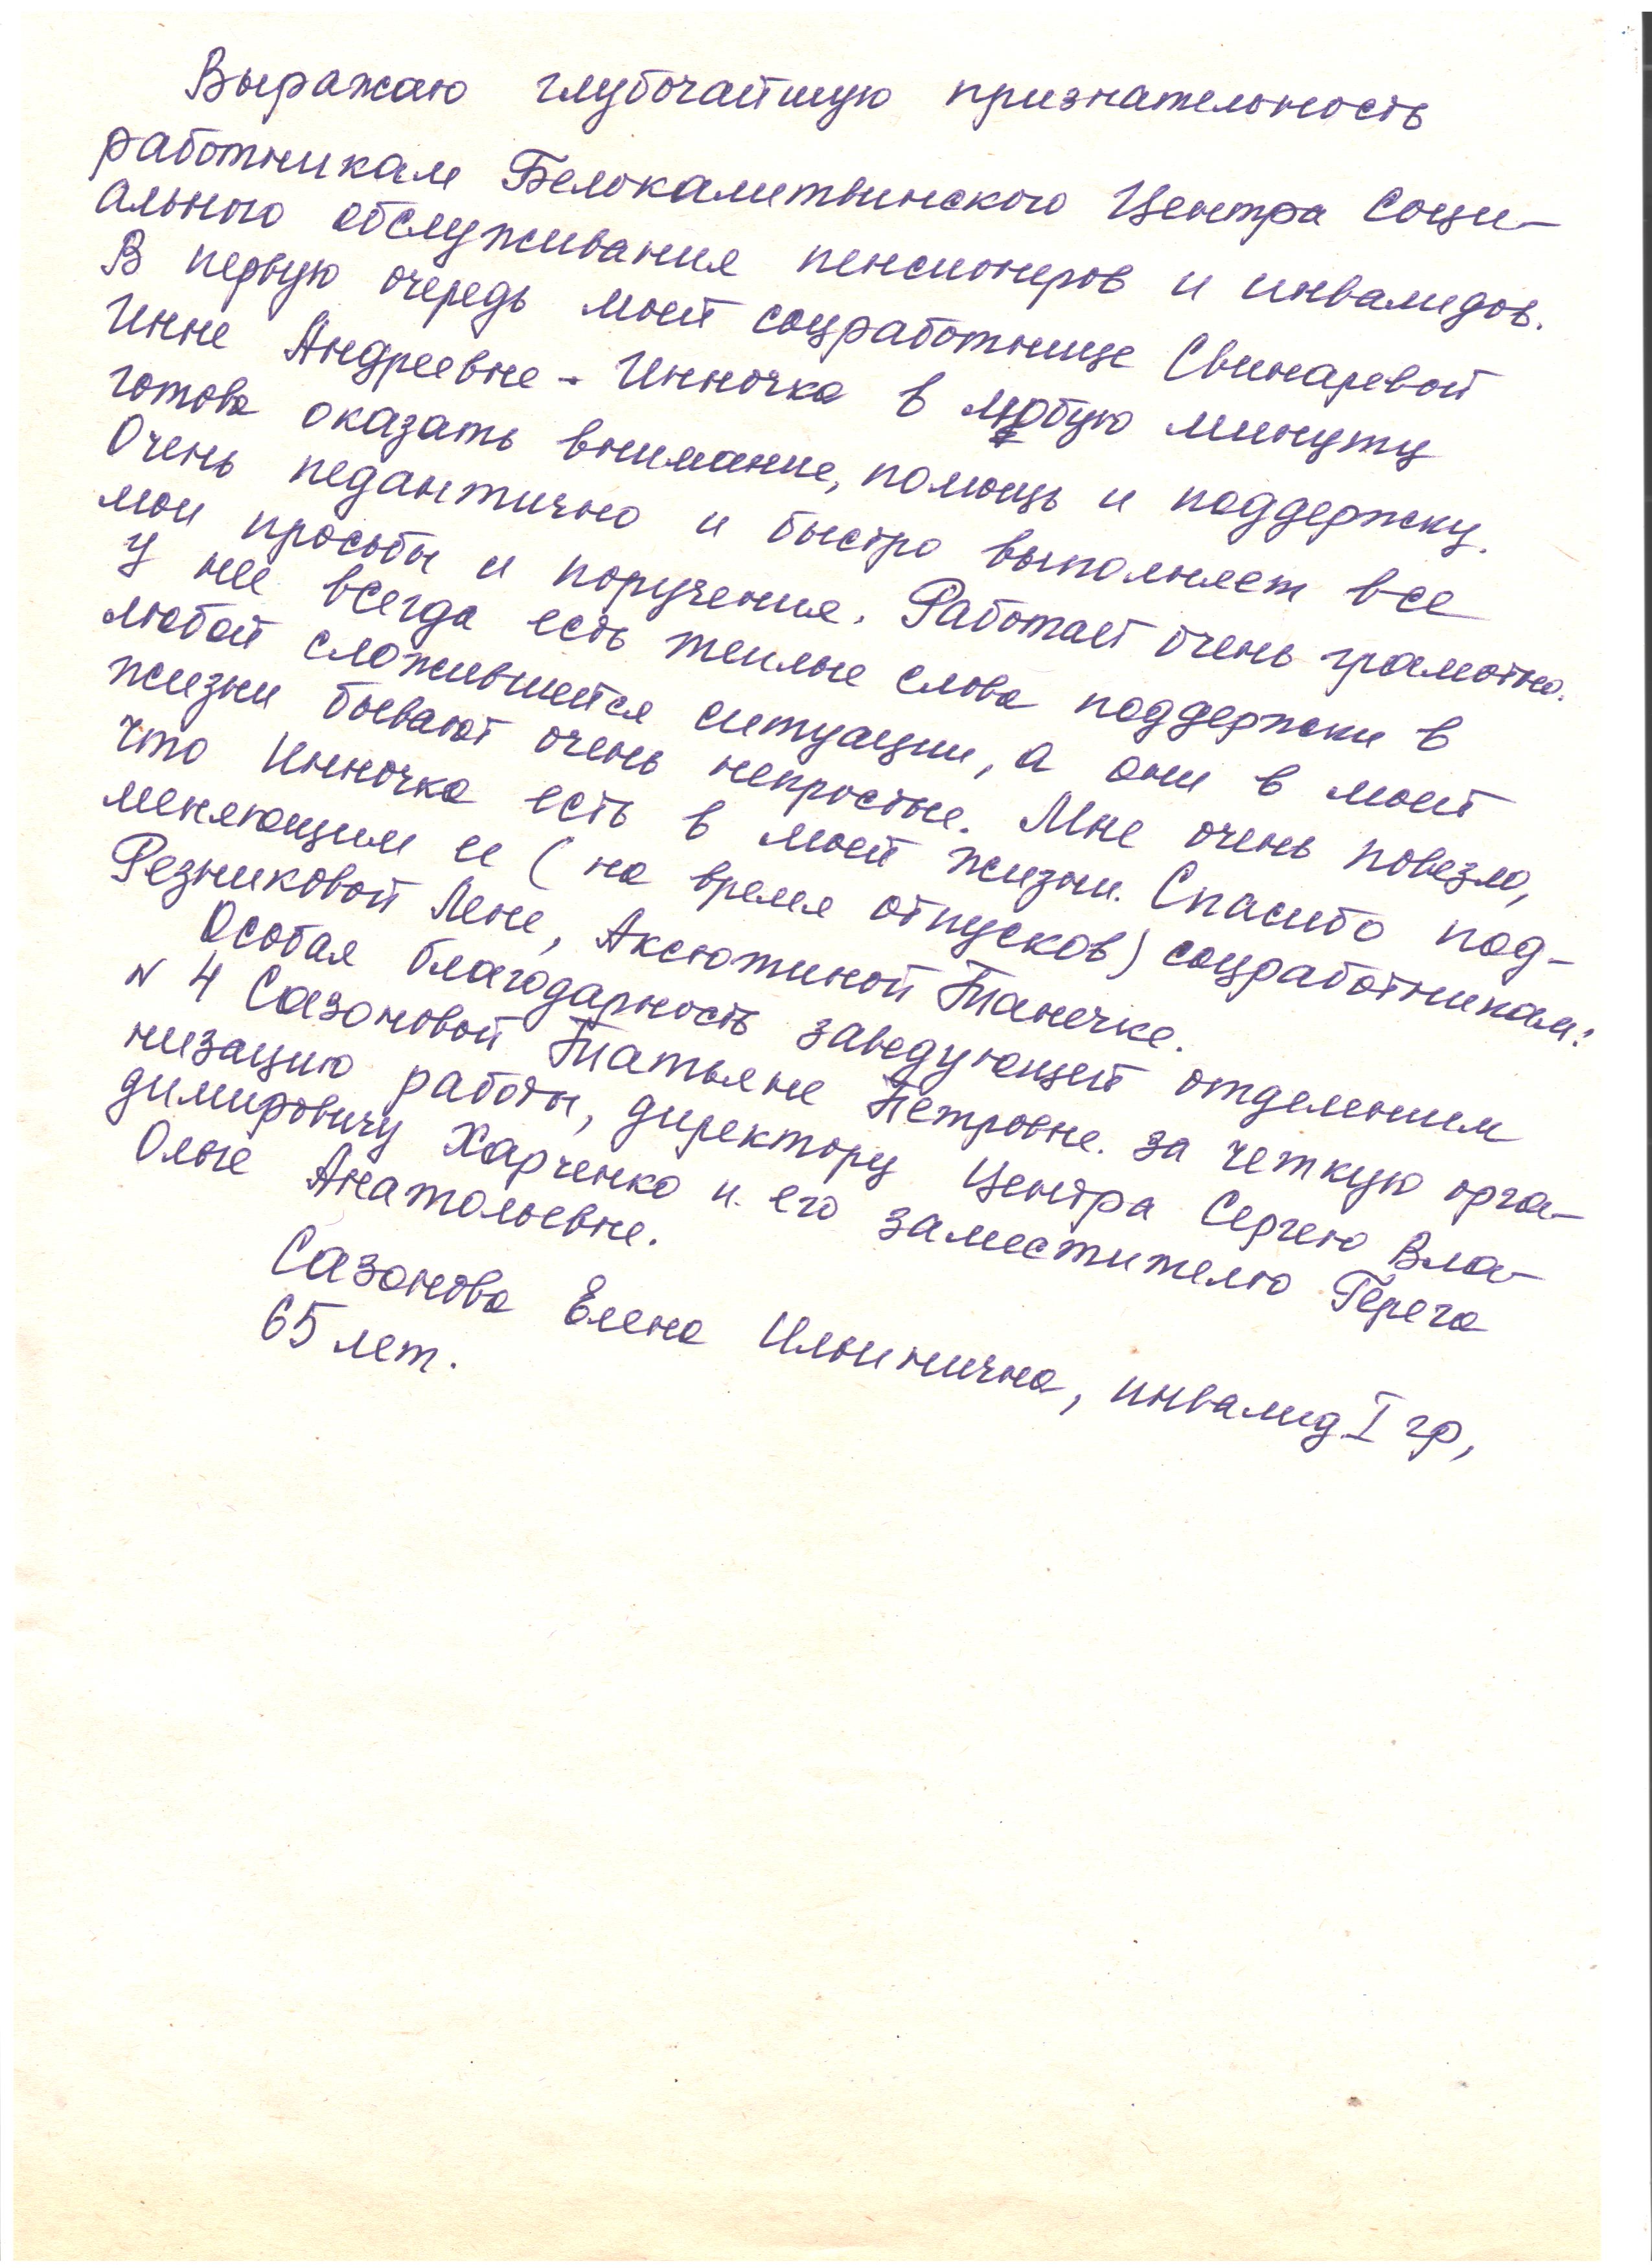 Выражаю глубочайшую признательность
работникам Белокалитвинского Центра соци-
ального обслуживания пенсионеров и инвалидов.
В первую очередь моей соцработнице Свинаревой
Инне Андреевне - Инночка в любую минуту
готова оказать внимание, помощь и поддержку.
Очень педантично и быстро выполняет все
мои просьбы и поручения. Работает очень грамотно.
У нее всегда есть теплые слова поддержки в
любой сложившейся ситуации, а они в моей
жизни бывают очень непростые. Мне очень повезло,
что Инночка есть в моей жизни. Спасибо под-
меняющим ее (на время отпусков) соцработникам:
Резниковой Лене, Аксютиной Танечке.
Особая благодарность заведующей отделением
N 4 Сазоновой Татьяне Петровне. за четкую орга-
низацию работы, директору Центра Сергею Вла-
димировичу Харченко и его заместителю Герега
Ольге Анатольевне.
Сазонова Елена Ильинична, инвалид I гр,
65 лет.